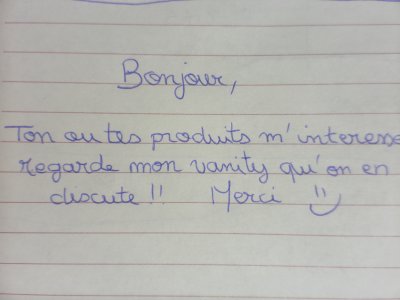 Bonjour,
Ton ou tes produits m'interesse
regarde mon vanity qu'on en
discute !!  Merci !!